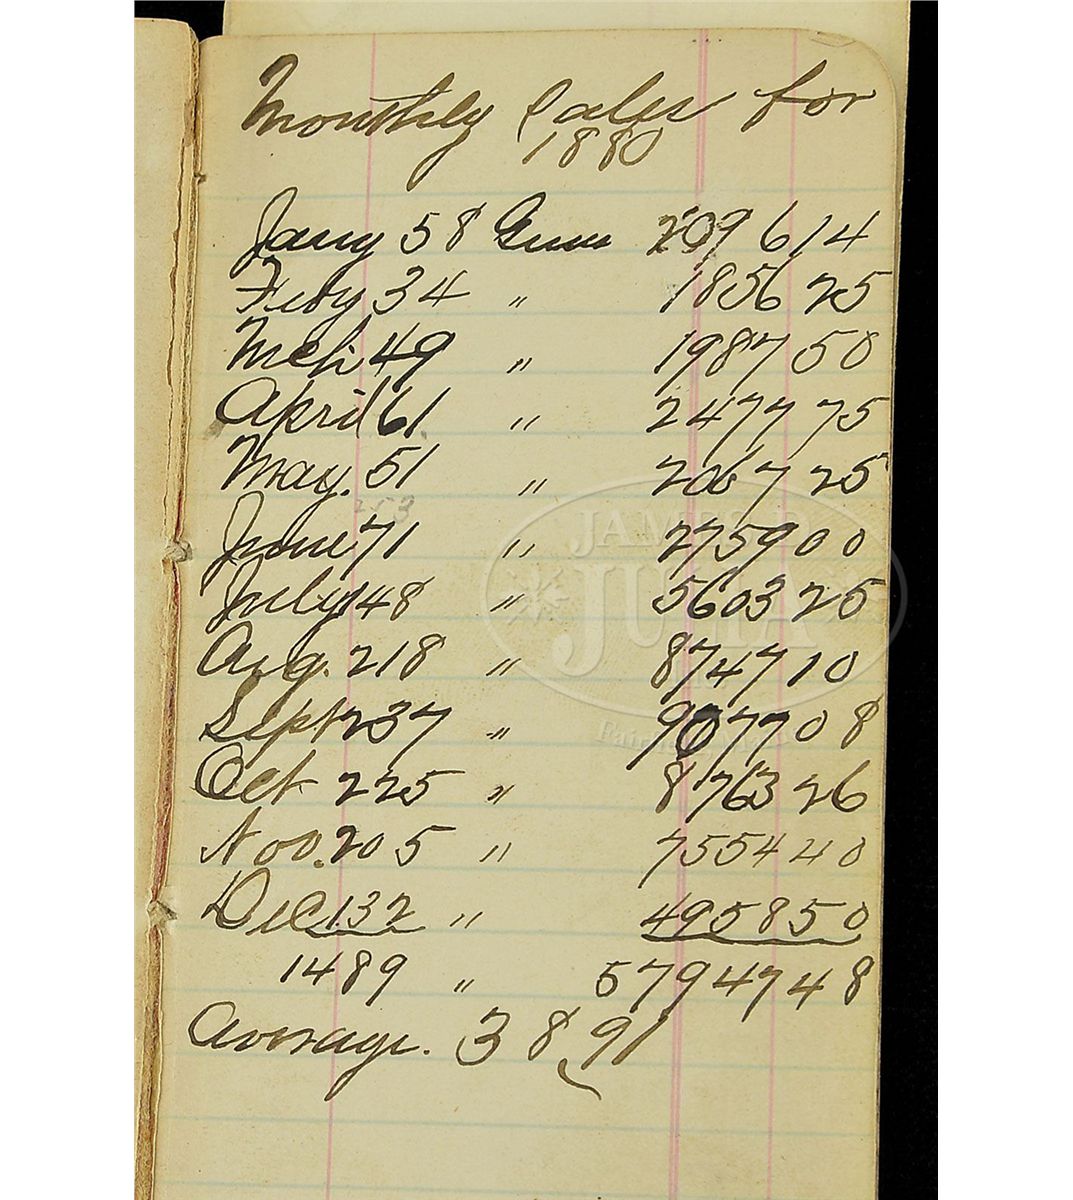 Monthly Sales for
1880
Jany 58 Guns 2096 14
Feby 34 " 1856 25
Mch 49 " 1987 50
April 61 " 2477 75
May. 51 " 2067 25
253
June 71 " 2759 00
July 148 " 5603 25
Aug. 218 " 8747 10
Sept 237 " 9077 08
Oct 225 " 8763 26
Nov. 205 " 7554 40
Dec 132 " 4958 50
1489 " 57947 48
Average. 38,91
JAMES D.
JULIA